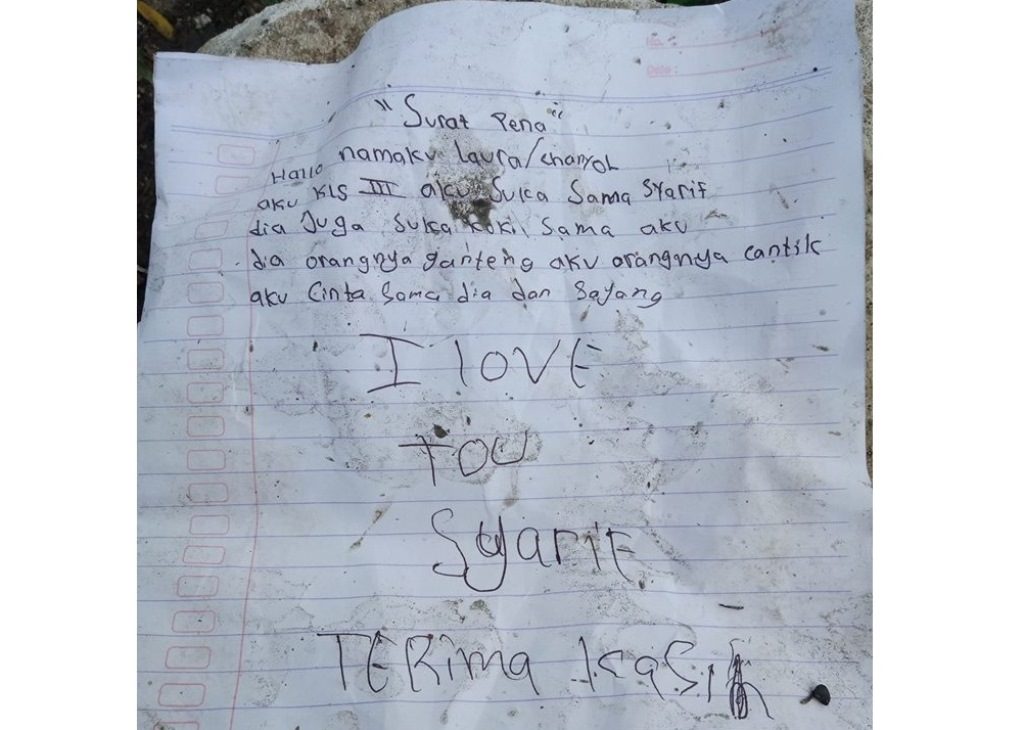 No :
Date :
"Surat Pena"
Hallo namaku Laura/chanyoL
aku KLS III aku Suka Sama Syarif
dia Juga Suka Sama aku
dia orangnya ganteng aku orangnya cantik
aku Cinta Sama dia dan Sayang
I LOVE
YOU
Syarif
TERima KaSih